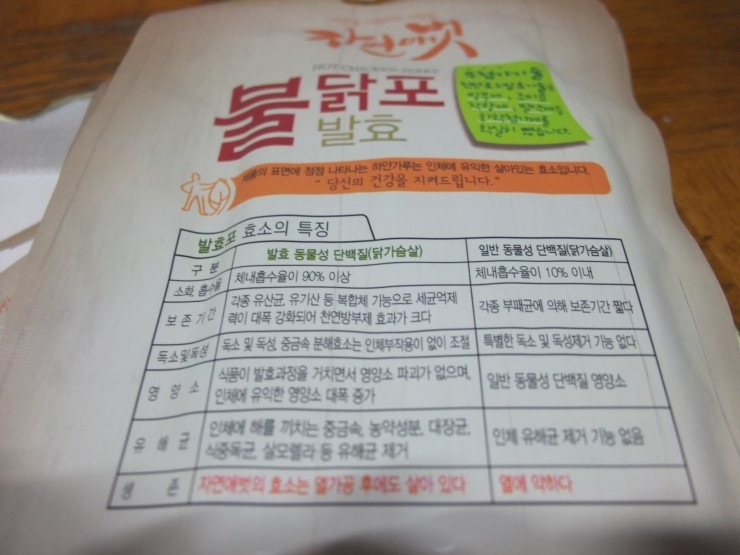 자연애벗
HOT CHICKEN JERRY
불닭포
발효
제품의 표면에 점점 나타나는 하얀가루는 인체에 유익한 살아있는 효소입니다.
"당신의 건강을 지켜드립니다."
발효포 효소의 특징
구 분 발효 동물성 단백질(닭가슴살) 일반 동물성 단백질(닭가슴살)
소화 흡수율 체내흡수율이 90% 이상 체내흡수율이 10% 이내
보 존 기 간 각종 유산균, 유기산 등 복합체 기능으로 세균억제
력이 대폭 강화되어 천연방부제 효과가 크다 각종 부패균에 의해 보존기간 짧다
독소및독성 독소 및 독성, 중금속 분해효소는 인체부작용이 없이 조절 특별한 독소 및 독성제거 기능 없다
영 양 소 식품이 발효과정을 거치면서 영양소 파괴가 없으며,
인체에 유익한 영양소 대폭 증가 일반 동물성 단백질 영양소
유 해 균 인체에 해를 끼치는 중금속, 농약성분, 대장균,
식중독균, 살모렐라 등 유해균 제거 인체 유해균 제거 기능 없음
자연애벗의 효소는 열가공 후에도 살아 있다 열에 약하다